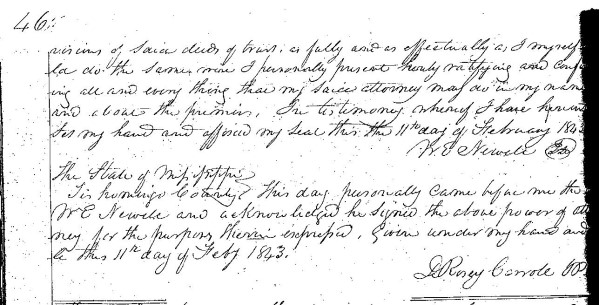 46
visions of said deeds of trust as fully and as effectually as I myself
do the same were I personally present hereby ratifying and conf
ing all and every thing that my said attorney may do in my name
and about the premises, In testimony whereof I have hereun
my hand and affixed my Seal this the 11th day of February 1843
W. E. Newell
The State of Mississippi
Tishomingo County This day personally came before me the
W E Newell and acknowledged he signed the above power of att
ney for the purposes therein expressed, Given under my hand and
this 11th day of Feby 1843.
Carroll